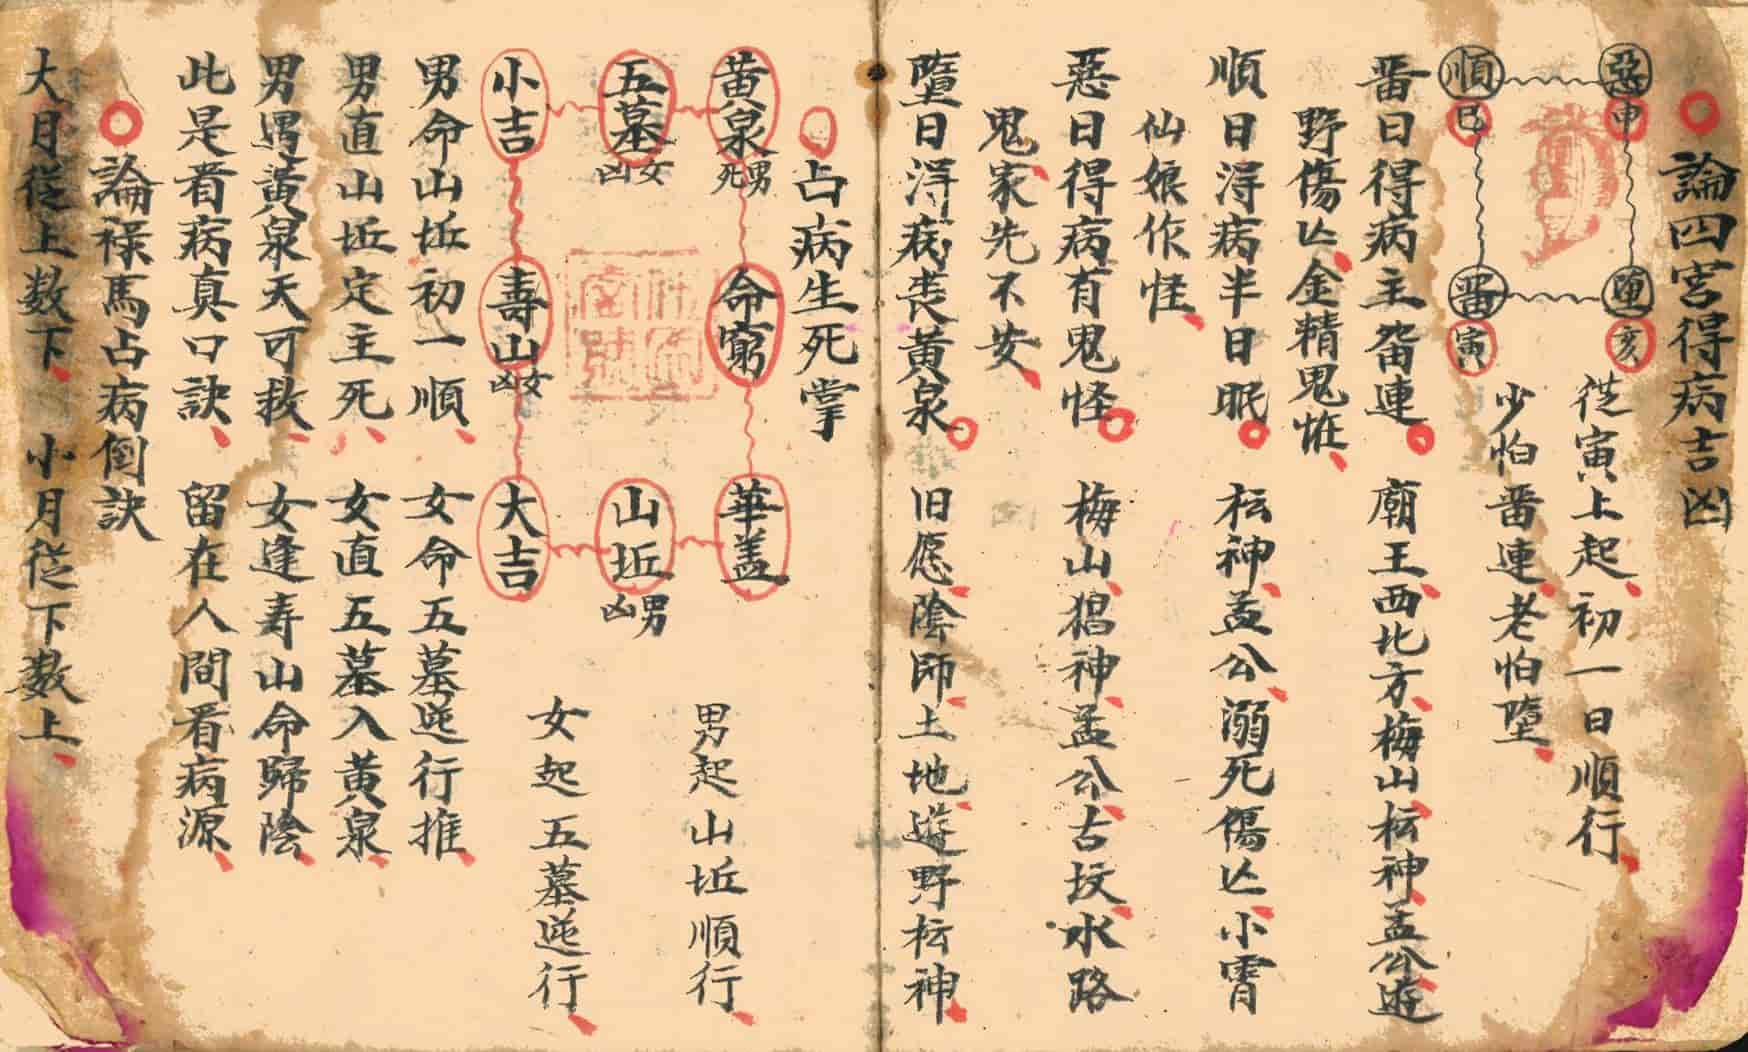 論四宮得病吉凶
惡申 順巳
墮亥 畨寅
從寅上起初一日順行
少怕畨連老怕墮
畨日得病主畨連 廟王西北方梅山枟神孟公遊
野傷亾金精鬼恠
順日淂病半日眠 枟神孟公溺死傷亾小霄
仙娘作怪
惡日得病有鬼怪 梅山猖神孟公古坟水路
鬼家先不安
墮日淂病喪黄泉 旧愿陰師土地遊野枟神
占病生死掌
黄泉 男死 命窮 華盖
五墓 女凶 山坵 男凶
小吉 壽山 女凶 大吉
男起山坵順行
女起五墓逆行
男命山坵初一順 女命五墓逆行推
男直山坵定主死 女直五墓入黄泉
男男黃泉天可救 女逢寿山命歸陰
此是看病真口訣 留在人間看病源
論禄馬占病倒訣
大月從上数下 小月從下数上